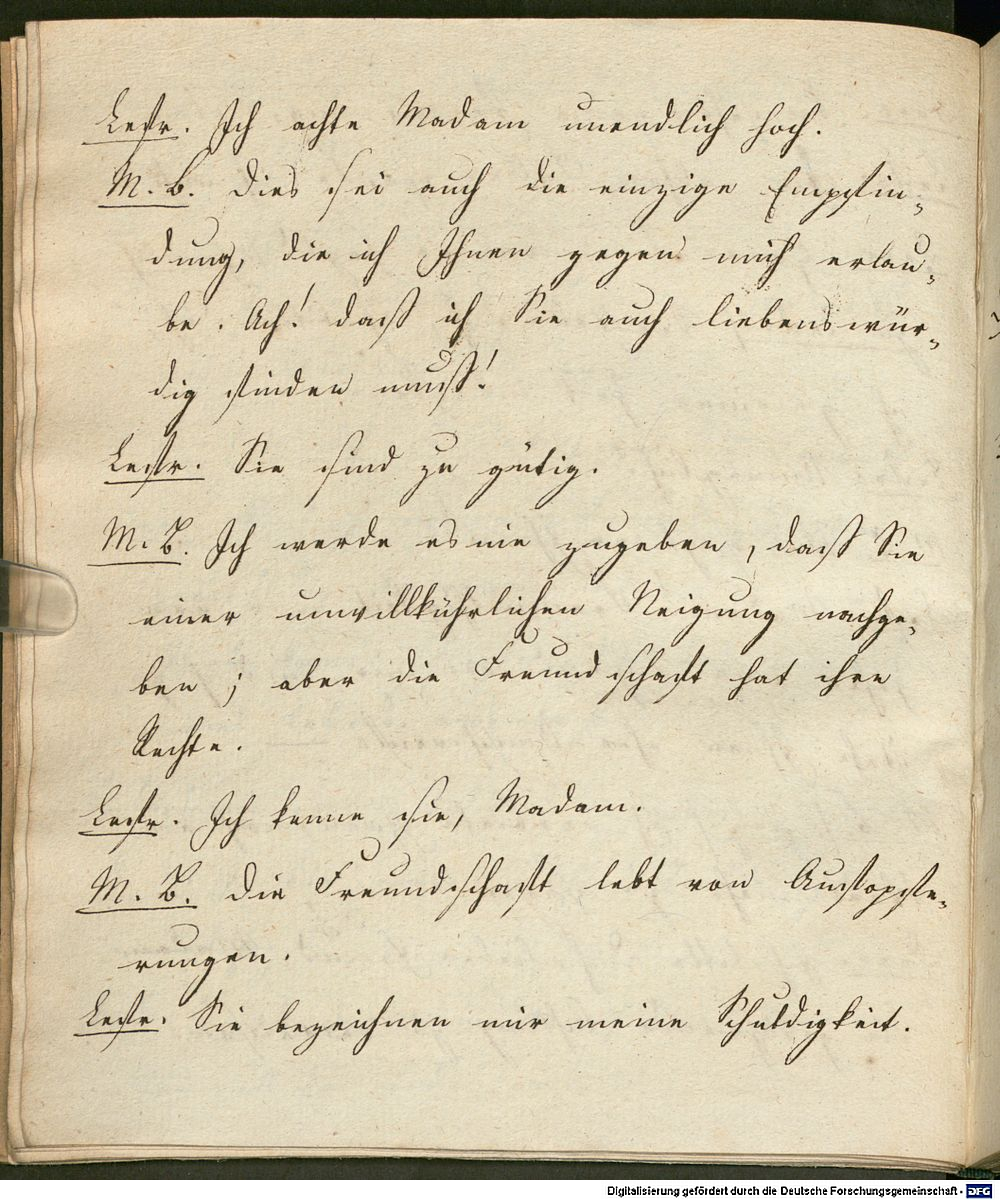 Lestr. Ich achte Madam unendlich hoch.
M. B. Dies sei auch die einzige Empfin-
dung, die ich Ihnen gegen mich erlau-
be. Ach! daß ich Sie auch liebenswür-
dig finden muß!
Lestr. Sie sind zu gütig.
M. B. Ich werde es nie zugeben, daß Sie
einer unwillkührlichen Neigung nachge-
ben; aber die Freundschaft hat ihre
Rechte.
Lestr. Ich kenne sie, Madam.
M. B. Die Freundschaft lebt von Aufopfe-
rungen.
Lestr. Sie bezeichnen mir meine Schuldigkeit.
Digitalisierung gefördert durch die Deutsche Forschungsgemeinschaft - DFG